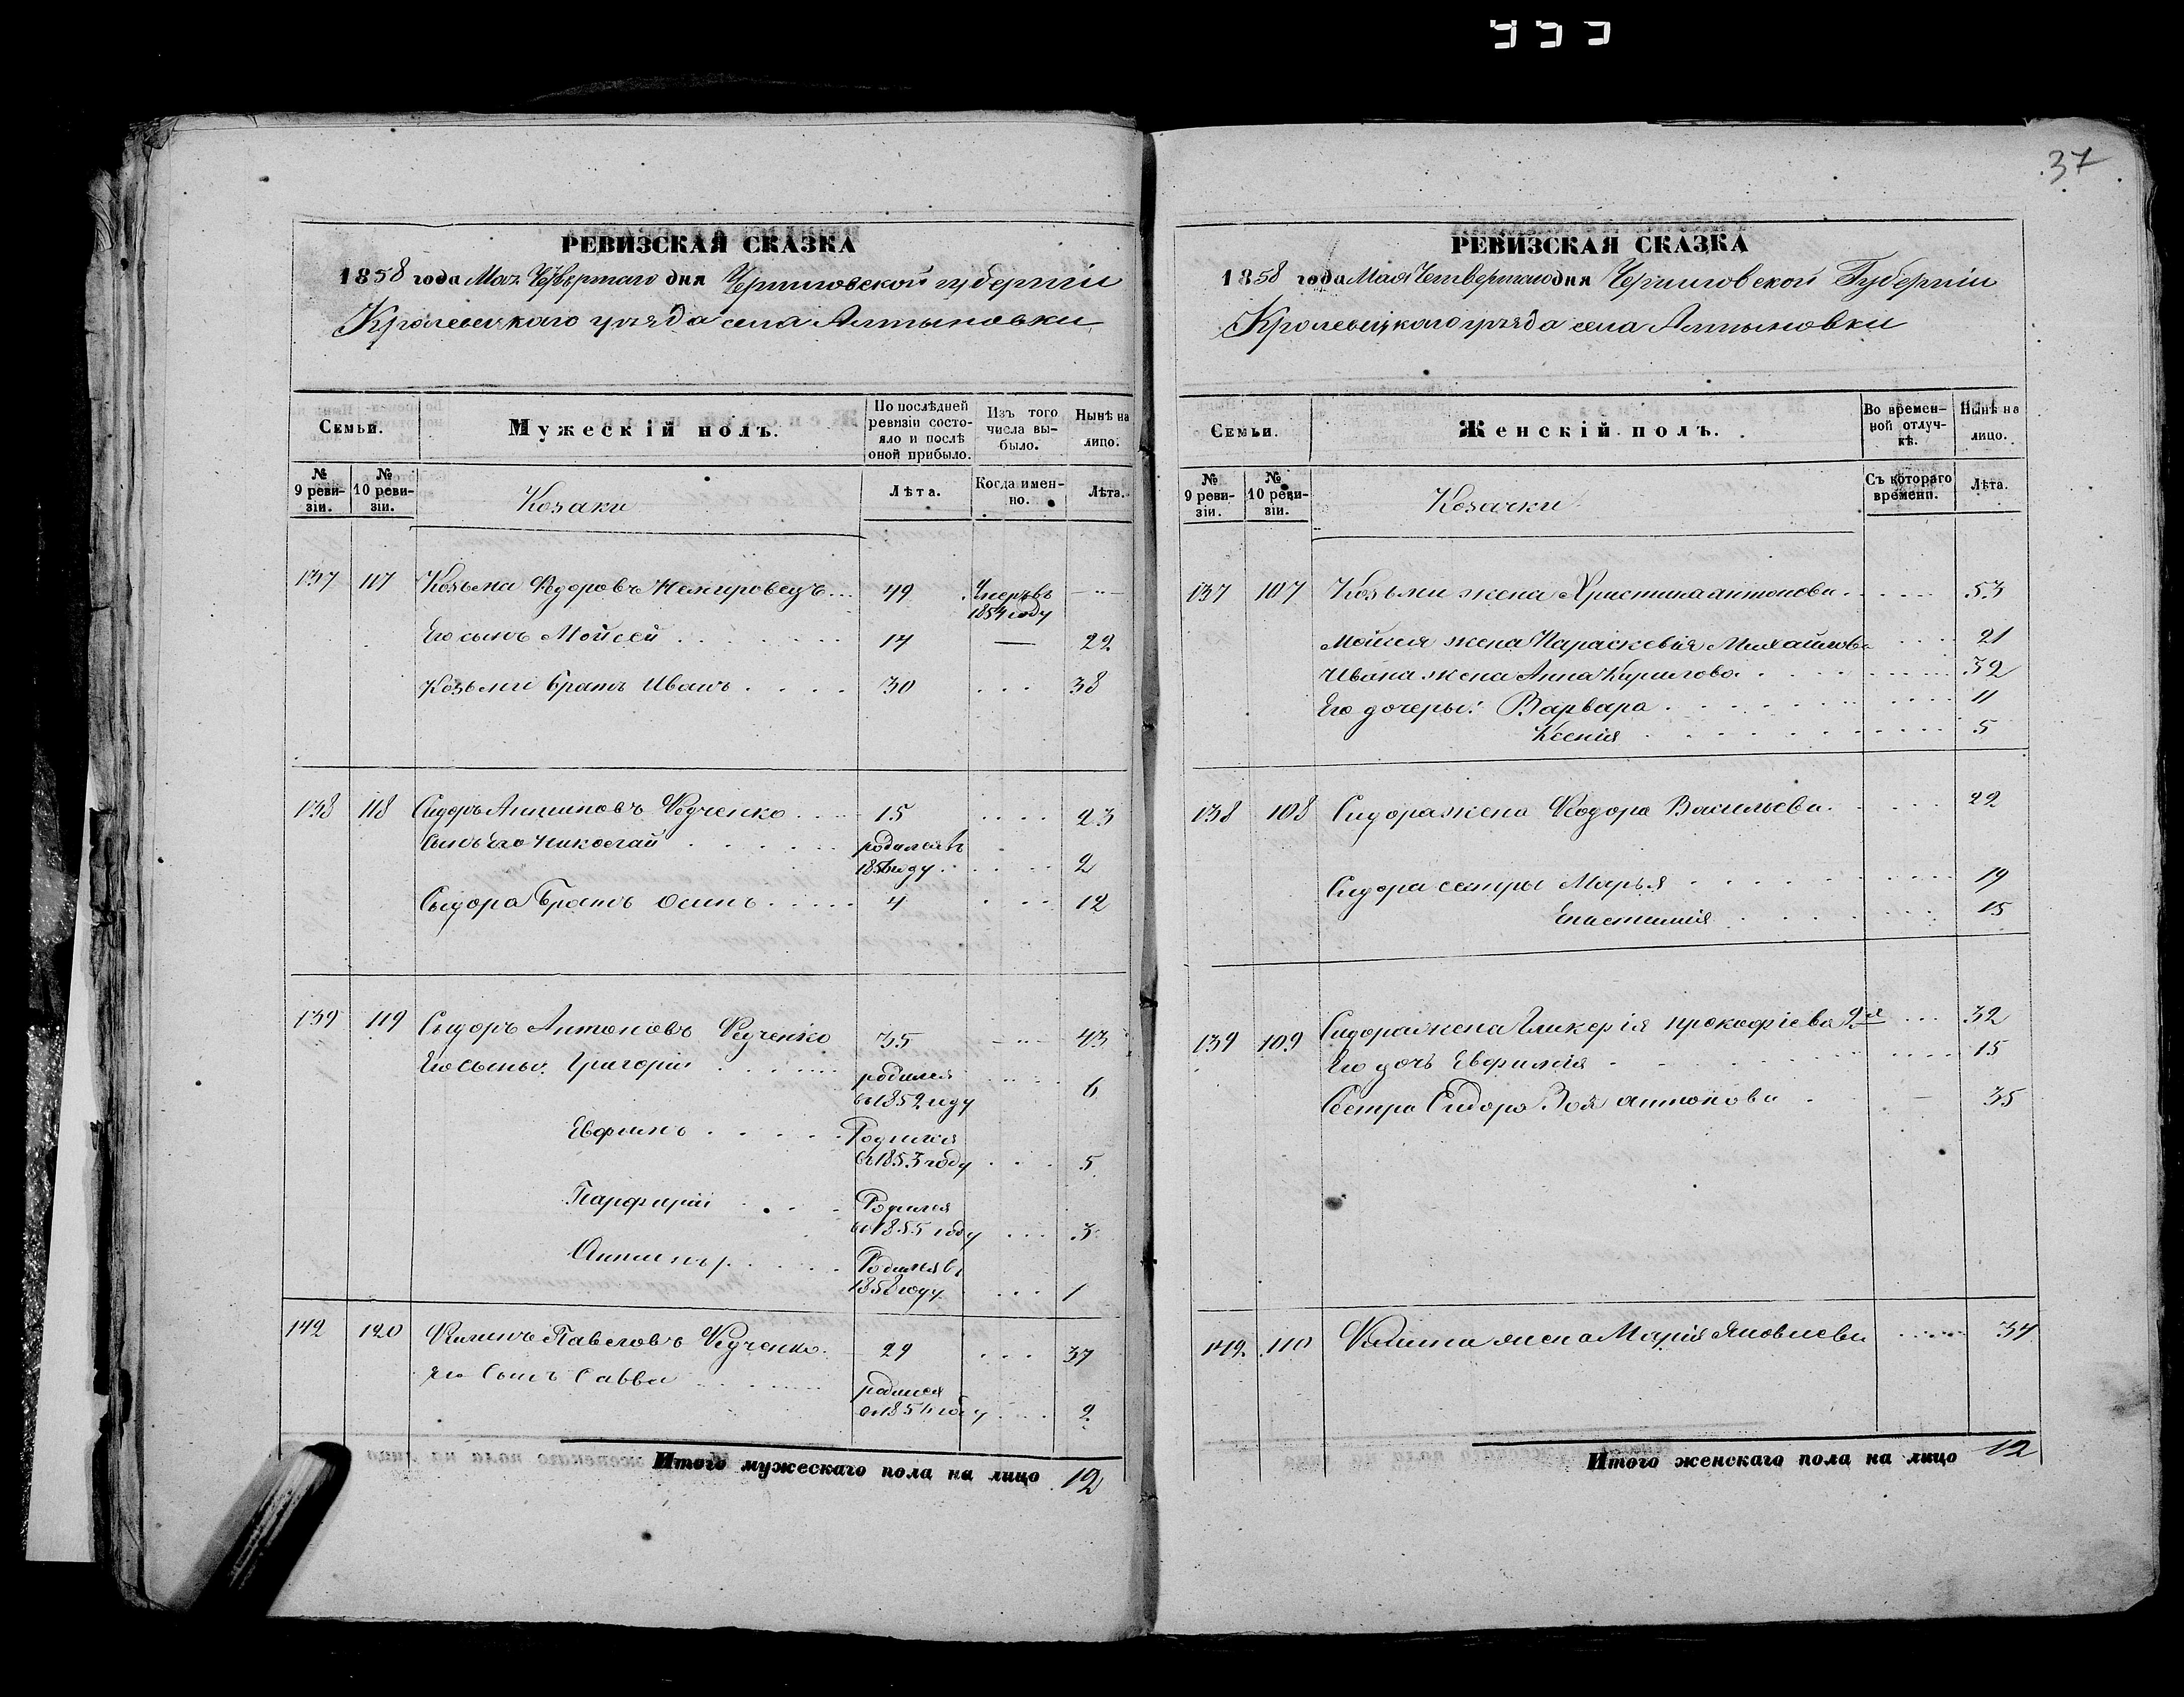 37
РЕВИЗСКАЯ СКАЗКА
1858 года Мая Четвертаго дня Черниговской губерніи
Кролевецкаго уезда села Алтыновки
Семьи.
Мужескій полъ.
По послѣдней ревизіи состояло и послѣ оной прибыло.
Изъ того числа выбыло.
Нынѣ на лицо.
№ 9 ревизіи.
№ 10 ревизіи.
Козаки
Лѣта.
Когда именно.
Лѣта.
137 117 Козьма Федоровъ Немировецъ 49 Умеръ въ
1854 году
Его сынъ Мойсей 14 — 22
Козьми братъ Иванъ 30 38
138 118 Сидоръ Антиповъ Федченко 15 23
Сынъ его Николай родился въ
1856 году 2
Сыдора Братъ Осипъ 4 12
139 119 Сыдоръ Антоновъ Федченко 35 43
Его сыны: Григорій родился
въ 1852 году 6
Евфимъ Родился
въ 1853 году 5
Парфирій Родился
въ 1855 году 3
Антипъ Родился въ
году 1
142 120 Филипъ Павловъ Федченко 29 37
Его Сынъ Савва родился
году 2
Итого мужескаго пола на лицо 12
РЕВИЗСКАЯ СКАЗКА
1858 года Мая Четвертаго дня Черниговской Губерніи
Кролевецкаго уезда села Алтыновки
Семьи.
Женскій полъ.
Во временной отлучкѣ.
Нынѣ на лицо.
№ 9 ревизіи.
№ 10 ревизіи.
Козачки
Съ котораго времени.
Лѣта.
137 107 Козьми жена Христина антонова 53
Мойсея жена Параскевія Михайлова 21
Ивана жена Анна Кирилова 32
Его дочеры: Варвара 11
Ксенія 5
138 108 Сидора жена Феодора Васильева 22
Сидора сестры Марья 19
15
139 109 Сидора жена Гликерія прокофіева 2я 32
Его дочь Евфимія 15
Сестра Сидора Зоя антонова — 35
142 110 Филипа жена Марія Яковлева 34
Итого женскаго пола на лицо 12